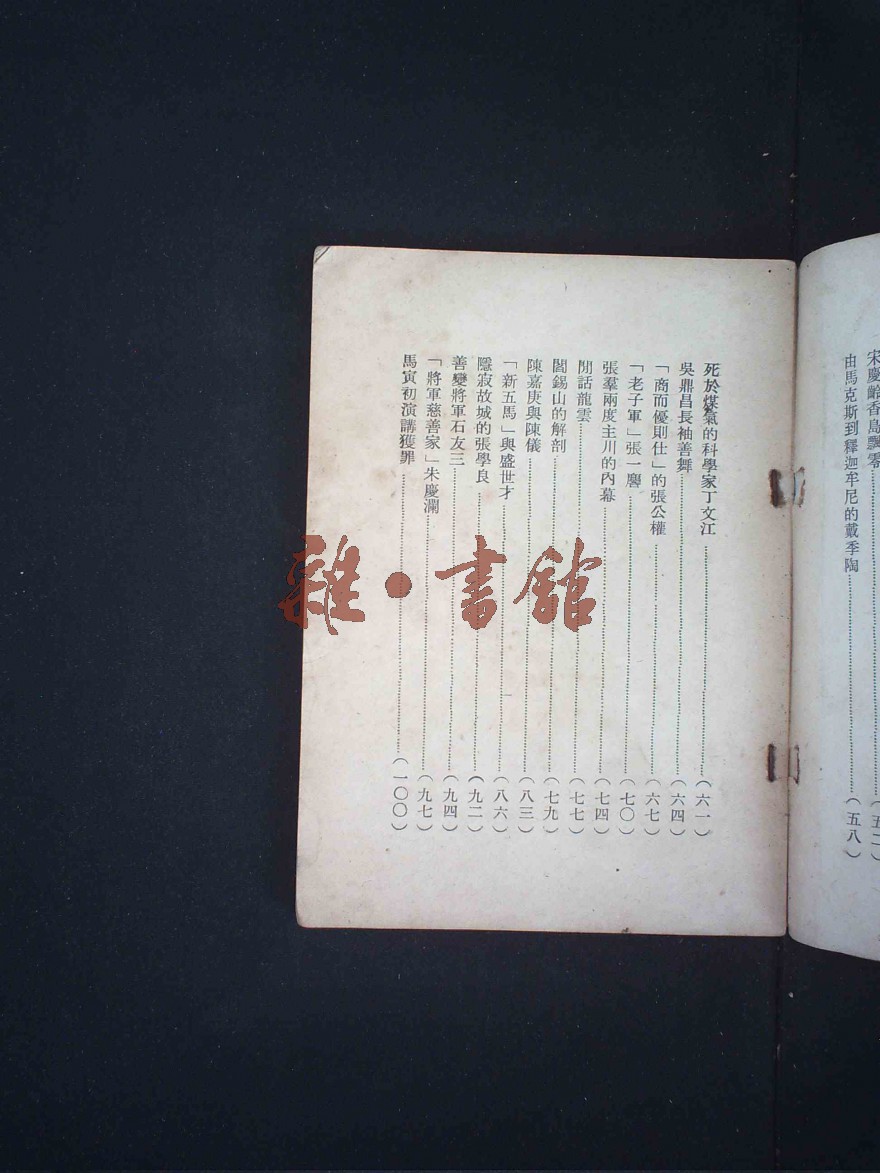 宋慶齡香島飄零……………………(五二)
由馬克斯到釋迦牟尼的戴季陶……………………(五八)
死於煤氣的科學家丁文江……………………(六一)
吳鼎昌長袖善舞……………………(六四)
「商而優則仕」的張公權……………………(六七)
「老子軍」張一麐……………………(七〇)
張羣兩度主川的內幕……………………(七四)
閒話龍雲……………………(七七)
閻錫山的解剖……………………(七九)
陳嘉庚與陳儀……………………(八三)
「新五馬」與盛世才……………………(八六)
隱寂故城的張學良……………………(九二)
善變將軍石友三……………………(九四)
「將軍慈善家」朱慶瀾……………………(九七)
馬寅初演講獲罪……………………(一〇〇)
雜·書館